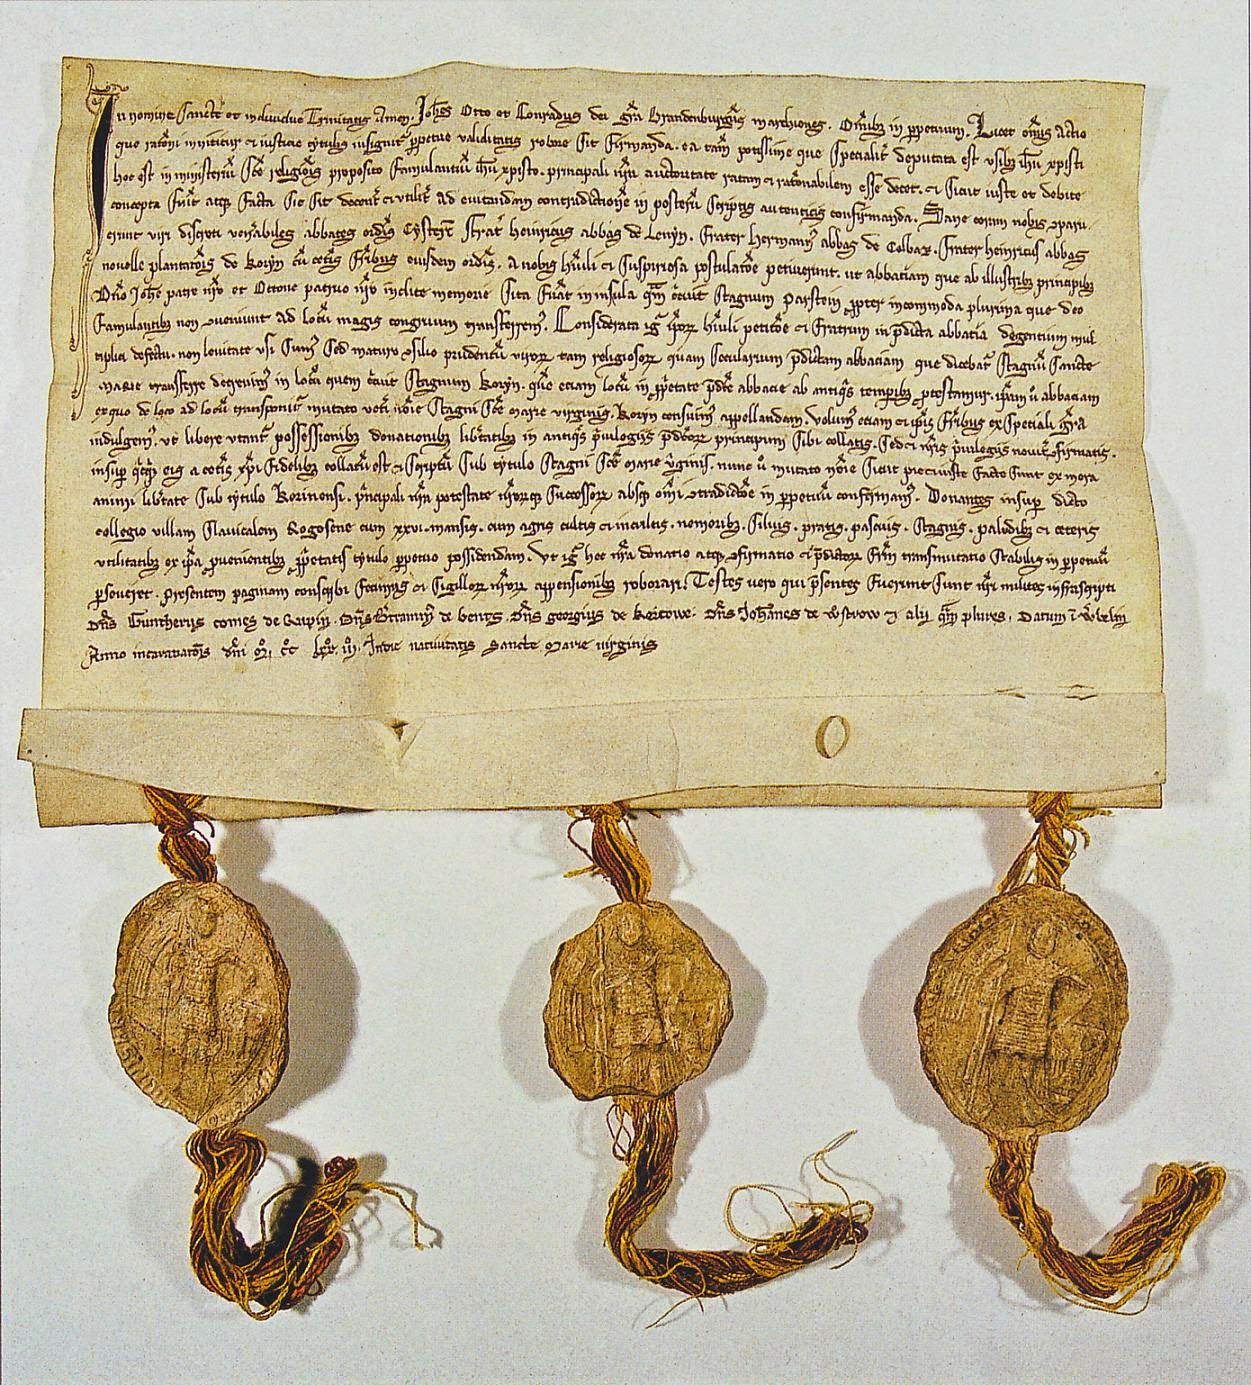 In nomine sancte et individue Trinitatis Amen. Joh̄es Otto et Conradus dei gr̄a Brandenburgēs marchiones. Om̄ib; in ꝑpetuum. Licet om̄is actio
que rat̄oni innititur et iusticie tytulis insignit᷑ ꝑpetue validitatis robore sit firmanda. ea tam̄ potissime que specialit̄ deputata est usib; ih̄u xp̄isti
hoc est in ministeriū sc̄e religiōis proposito famulantiū ih̄u xp̄isto. principali nr̄a auctoritate ratam et rat̄onabilem esse decet. et sicut iuste et debite
concepta fuīt atq; facta sic sit decent᷑ et utilit᷑ ad evitandam contradictiōe in posterū scriptis autenticis confirmanda. Sane coram nobis ꝯparu-
erunt viri discreti ven̄abiles abbates ordīs Cysterc̄ frat̄ heinricus abbas de Lenyn. frater hermann᷒ abbas de Colbaz. frater heinricus abbas
novelle plantat̄ois de Koryn cū cet̄is fr̄ibus eiusdem ordīs. a nobis hūili et suspiriosa postulat̄oe petiverunt. ut abbaciam que ab illustrib; principib;
Dn̄o Joh̄e patre nr̄o et Ottone patruo nr̄o inclite memorie sita fūat in insula qm̄ c̄cuit stagnum parstein ꝓpter incommoda plurima que deo
famulantib; non ꝯveniunt ad locū magis congruum transferrem᷒. Considerata ig̅ ip̄or̄ hūili petit̄oe et fratrum in p̄dicta abbatia degentium mul
tiplici defectu. non levitate usi sum᷒ sed maturo ꝯsilio prudentū viror̄ tam religiosor̄ quam secularium p̄dictam abbaciam que dicebat᷑ stagnū sancte
marie transferre decrevim᷒ in locū quem c̄cuit stagnum Koryn. quē eciam locū in ꝓp̄etate p̄dc̄e abbacie ab antiq̄s temporib; protestamur. ip̄am ū abbaciam
ex quo de loco ad locū transponit᷑ mutato not̄i nōie stagni sc̄e marie virginis. Koryn censuim᷒ appellandam. Volum᷒ eciam et ip̄is fr̄ibus ex speciali gr̄a
indulgem᷒. ut libere utant᷑ possessionib; donationib; lib̄tatib; in antiq̄s p̄vilegiis p̄dc̄or̄ principum sibi collatis. sed et nr̄is p̄vilegiis novit᷑ ꝯfirmatis.
insup̱ q̄cq̄d eis a cet̄is xp̄i fidelib; collatū est et scriptū sub tytulo stagni sc̄e marie v̄ginis. nunc ū mutato nōie sicut pie et iuste facta sunt ex mera
animi lib̄tate sub tytulo Korinensi. p̄ncipali nr̄a potestate nr̄orq; successor̄ absq; om̄i ꝯtradict̄oe in ꝑpetuū confirmam᷒. Donantes insup̱ dicto
collegio villam slavicalem Rogosene cum xxvi. mansis. cum agris cultis et incultis. nemorib;. silvis. pratis. pascuis. stagnis. paludib; et ceteris
utilitatib; ex ip̄a ꝓvenientib; ꝓp̄etatis tytulo ꝑpetuo possidendam. Ut ig̅ hec nr̄a donatio atq; ꝯfirmatio et p̄dictor̄ fr̄m transmutatio stabilis in ꝑpetuū
ꝑseveret. presentem paginam conscribi fecim᷒ et sigillor̄ nr̄or̄ appensionib; roborari. Testes vero qui p̄sentes fuerunt sunt nr̄i milites infrascripti
Dn̄s Guntherus comes de Ruipin. Dn̄s de Dn̄s georgius de Kercowe. Dn̄s Joh̄annes de et alij q̄m plures. Datum ī
Anno incarnat̄ois dn̄i m̊. c̊c̊ lxx̊. iij. In die nativitatis sancte marie virginis